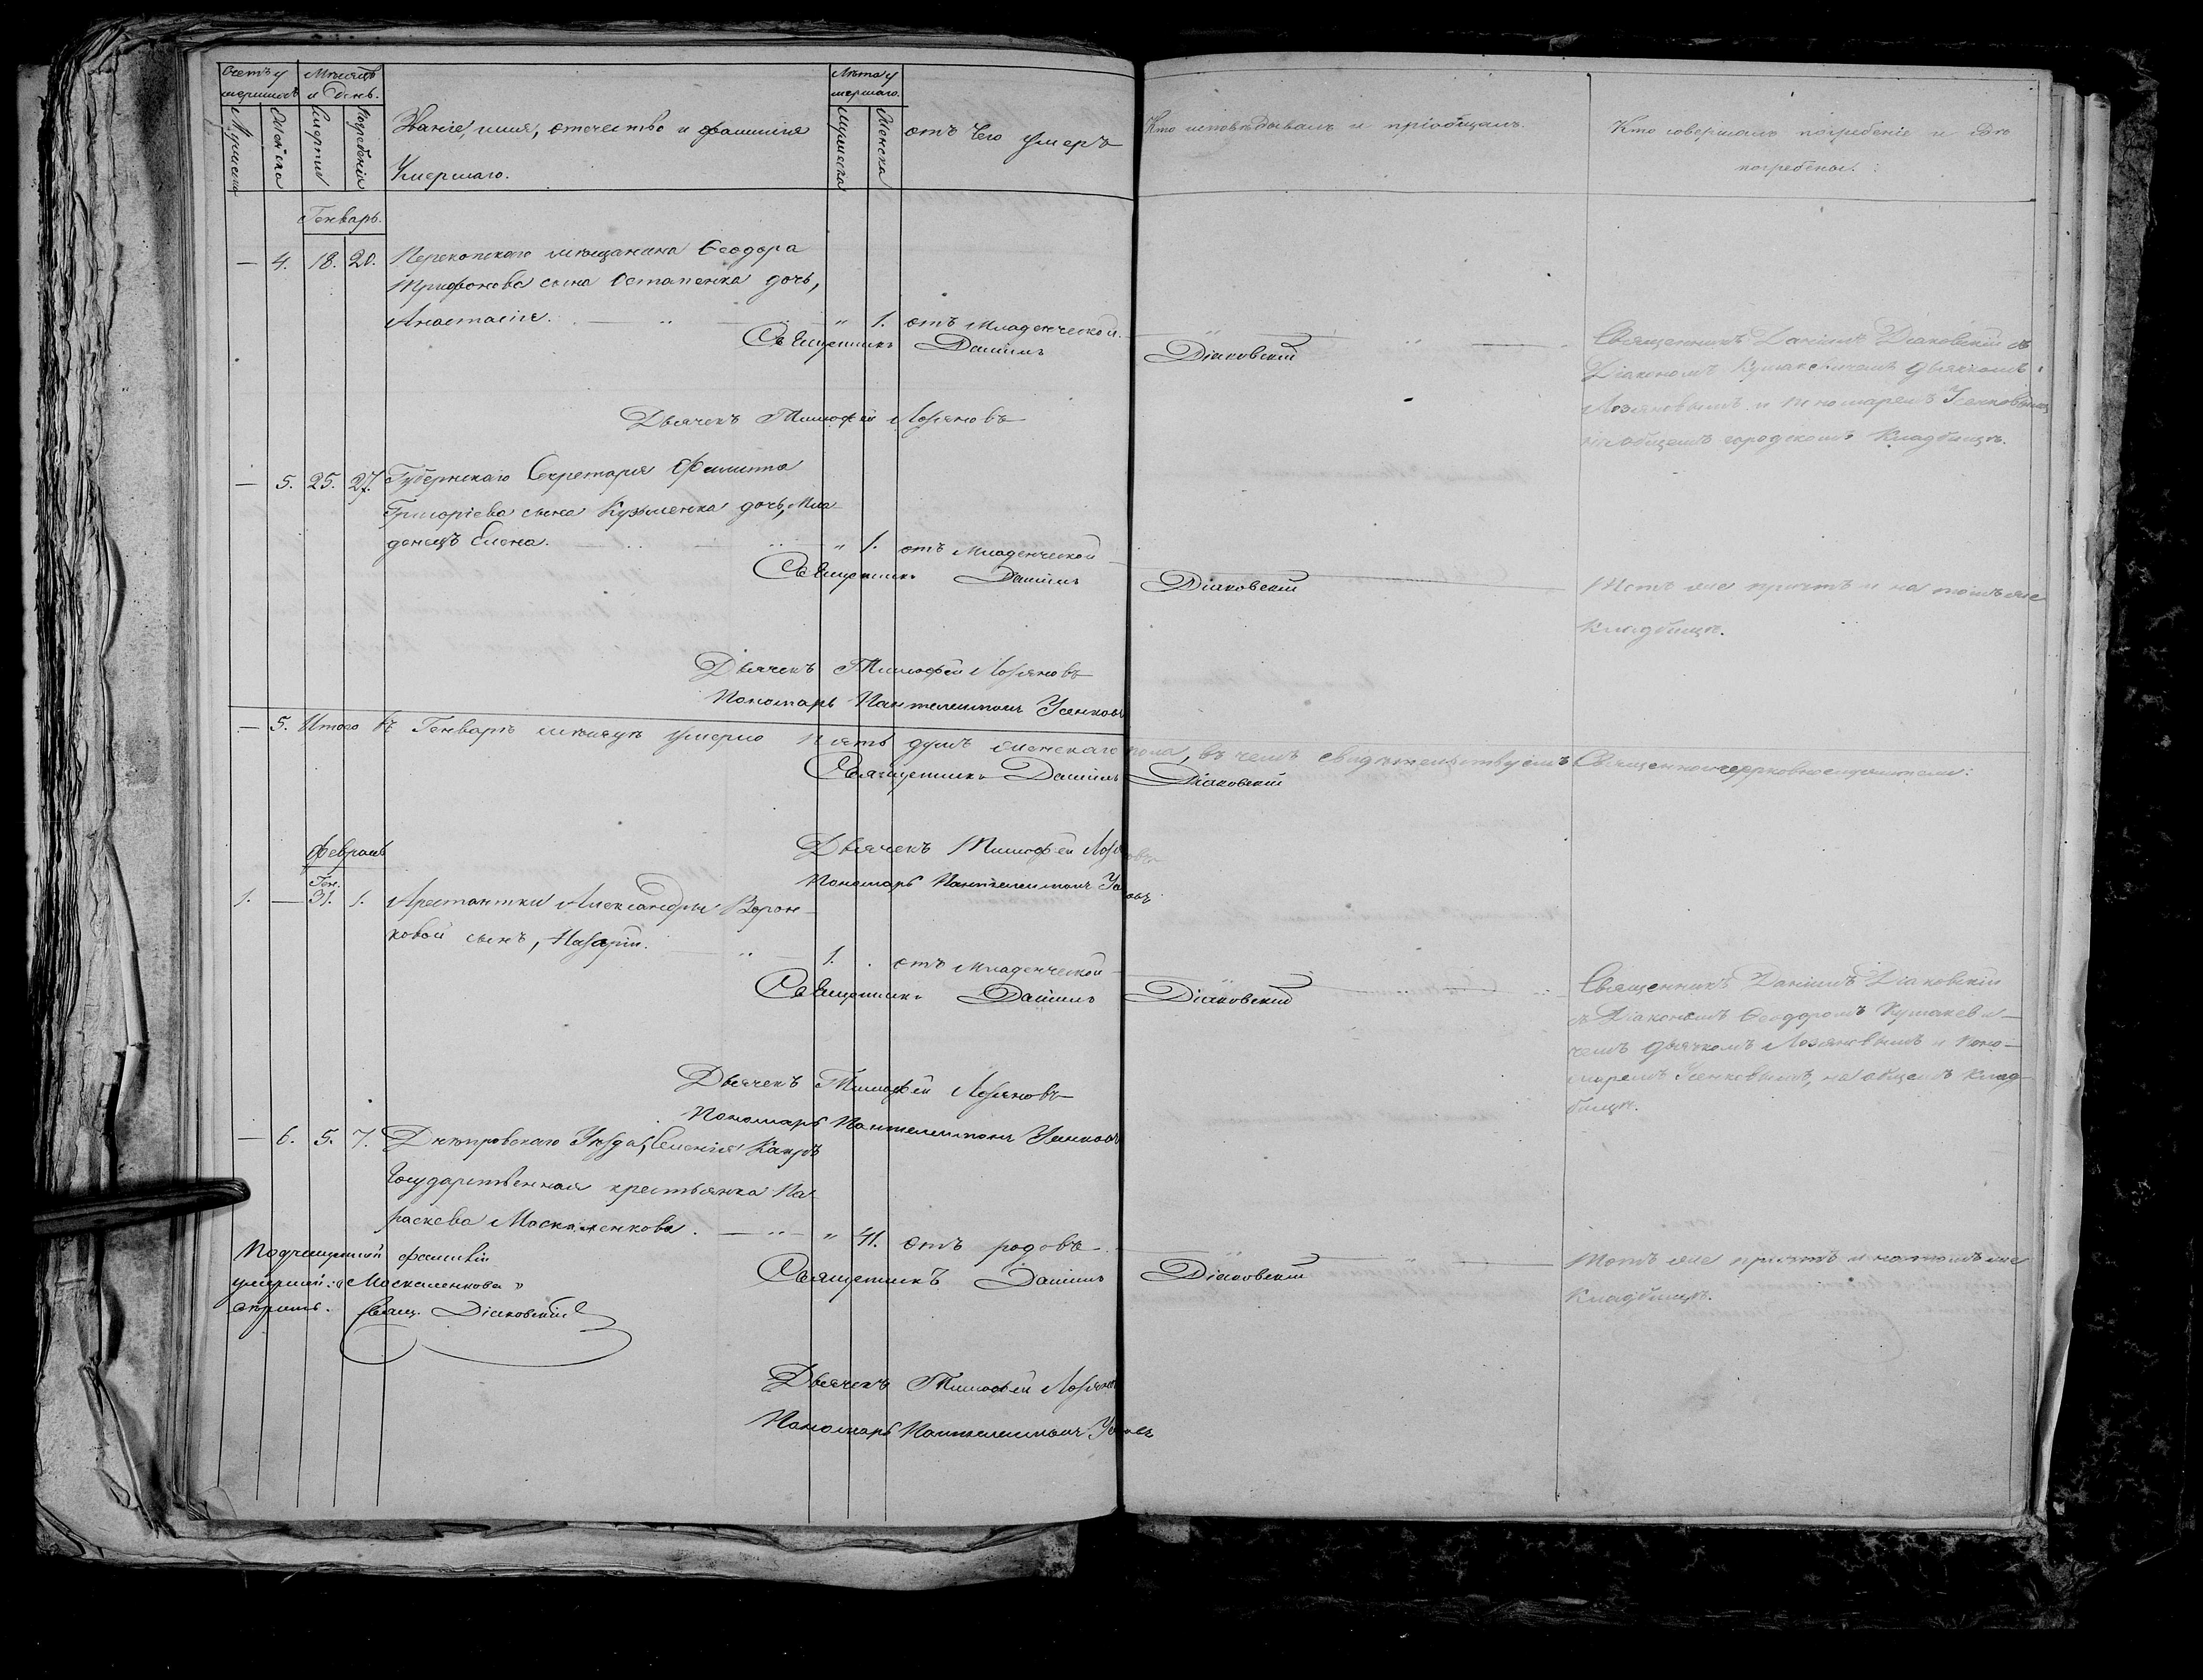 Счетъ у
мершихъ
Мѣсяцъ
и День.
Мужеска
Женска
Смерти
Погребенія
Званіе, имя, отечество и фамилія
Умершаго.
Лѣта у
мершаго.
Мужеска
Женска
отъ Чего умеръ
Кто исповѣдывалъ и пріобщалъ.
Кто совершалъ погребеніе и гдѣ
погребены.
Генварь.
— 4. 18. 20. Перекопскаго мѣщанина Ѳеодора
Трифонова сына Остапенка дочь,
Анастасія. — „ — „ 1. отъ Младенческой.
Священникъ Даніилъ Діаковскій
Священникъ Даніилъ Діаковскій съ
Діакономъ Кушакевичемъ дьячкомъ
Лозяновымъ и пономаремъ Усенковымъ
на общемъ городскомъ Кладбищѣ.
Дьячекъ Тимофей Лозяновъ
— 5. 25. 27. Губернскаго Секретаря Филиппа
Григоріева сына Кузьменка дочь, Мла
денецъ Елена. — „ 1. отъ Младенческой
Священникъ Даніилъ Діаковскій
Тотъ же причтъ и на томъ же
Кладбищѣ.
Дьячекъ Тимофей Лозяновъ
Пономарь Пантелеимонъ Усенковъ
— 5. Итого въ Генварѣ мѣсяцѣ умерло пять душъ женскаго пола, въ чемъ свидѣтельствуемъ Священноцерковнослужители:
Священникъ Даніилъ Діаковскій
Дьячекъ Тимофей Лозяновъ
Пономарь Пантелеимонъ
Февраль
Ген.
1. — 31. 1. Арестантки Александры Ворон-
ковой сынъ, Назарій. — „ — 1. . отъ Младенческой
Священникъ Даніилъ Діаковскій
Священникъ Даніилъ Діаковскій
съ Діакономъ Ѳеодоромъ Кушакеви-
чемъ дьячкомъ Лозяновымъ и поно-
маремъ Усенковымъ, на общемъ Клад-
бищѣ.
Дьячекъ Тимофей Лозяновъ
Пономарь Пантелеимонъ Усенковъ
— 6. 5. 7. Днѣпровскаго Уѣзда, Селенія Каиръ
Государственная крестьянка Па-
раскева Москаленкова. — „ — „ 41. отъ родовъ
Священникъ Даніилъ Діаковскій
Тотъ же причтъ и на томъ же
Кладбищѣ.
Подчищенной фамиліи
умершей: „Москаленкова"
Свящ. Діаковскій
Дьячекъ Тимофей Лозяновъ
Пономарь Пантелеимонъ